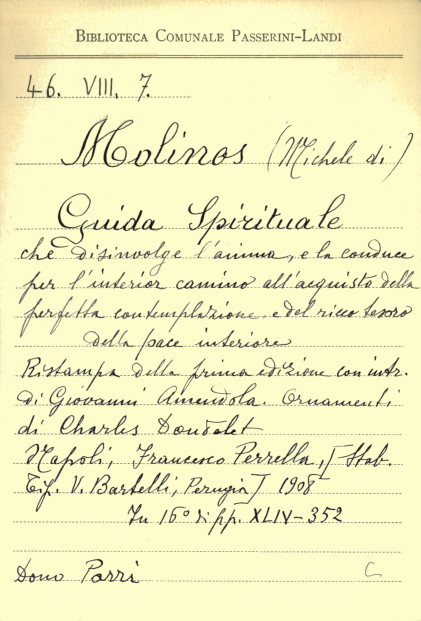 BIBLIOTECA COMUNALE PASSERINI-LANDI
46. VIII. 7.
Molinos (Michele di)
Guida Spirituale
che disinvolge l'anima, e la conduce
per l'interior camino all'acquisto della
perfetta contemplazione e del ricco tesoro
della pace interiore
Ristampa della prima edizione con intr.
di Giovanni Amendola. Ornamenti
di Charles Doudelet
Napoli, Francesco Perrella, [Stab.
Tip. V. Bartelli, Perugia] 1908
In 16° di pp. XLIV-352
Dono Parri
C